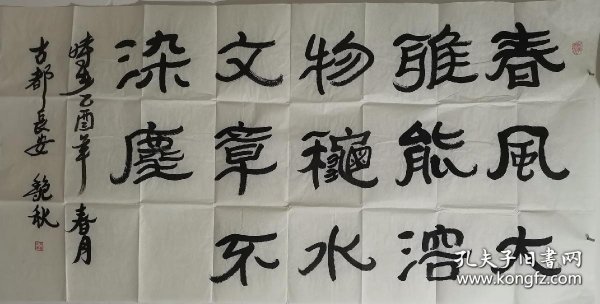 春風大
雅能溶
物穐水
文章不
染塵
時在乙酉年春月
古都長安 秋
孔夫子旧书网
www.kongfz.com